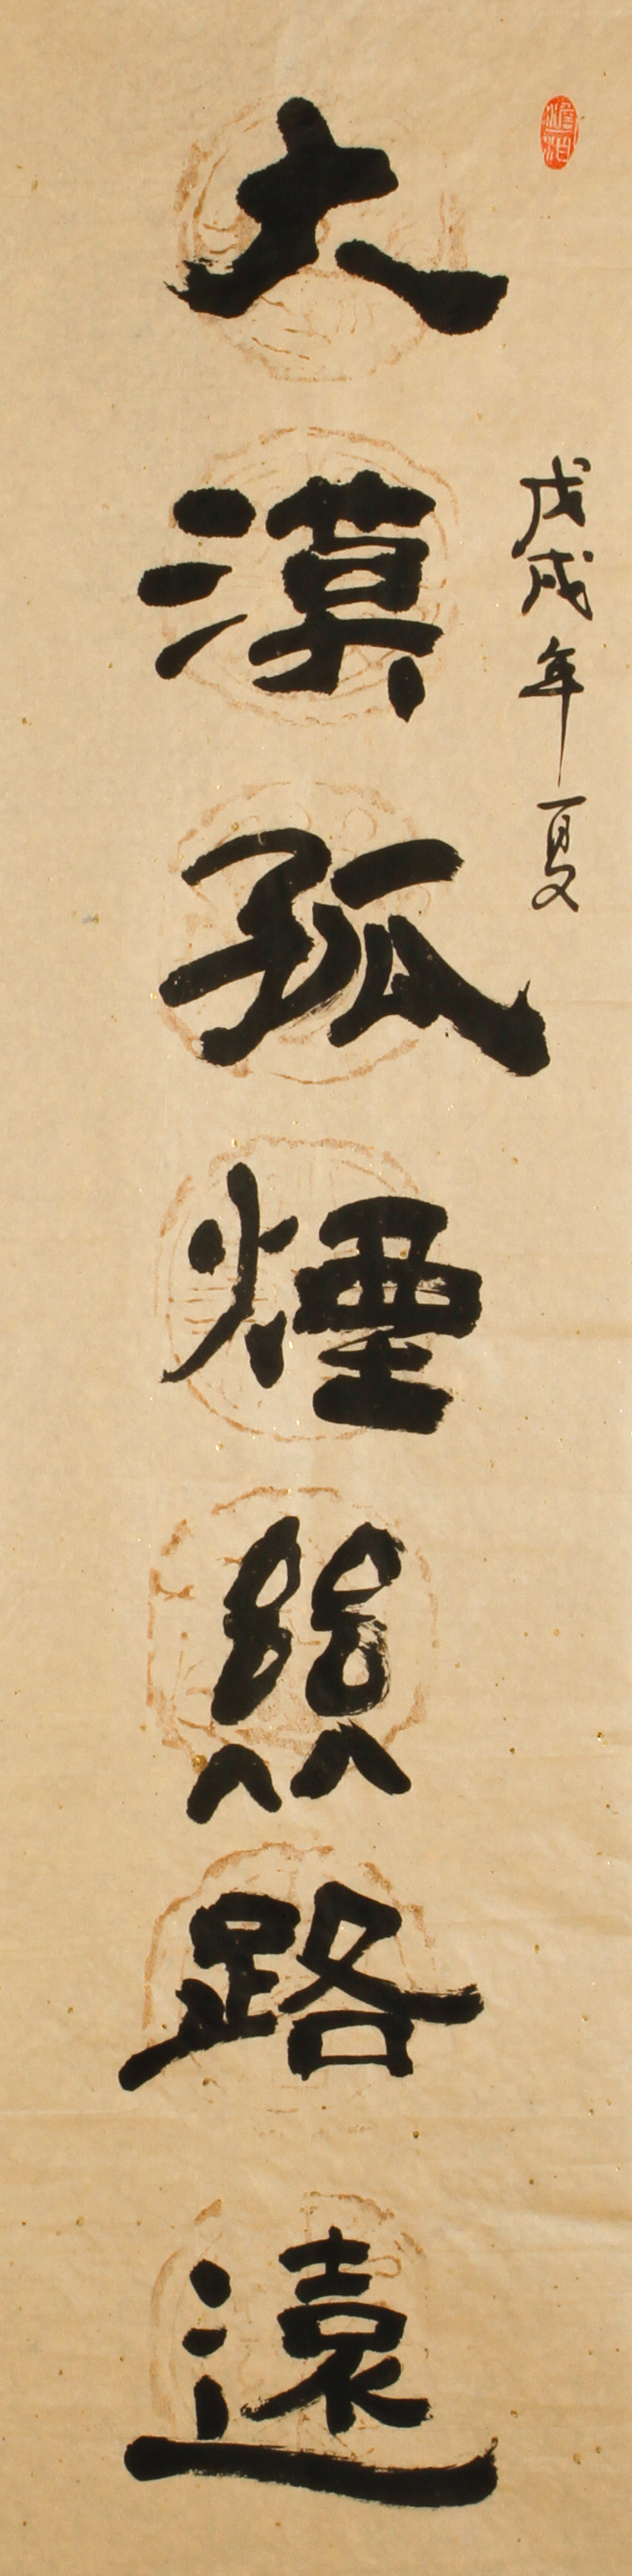 戊戌年夏
大漠孤煙絲路遠